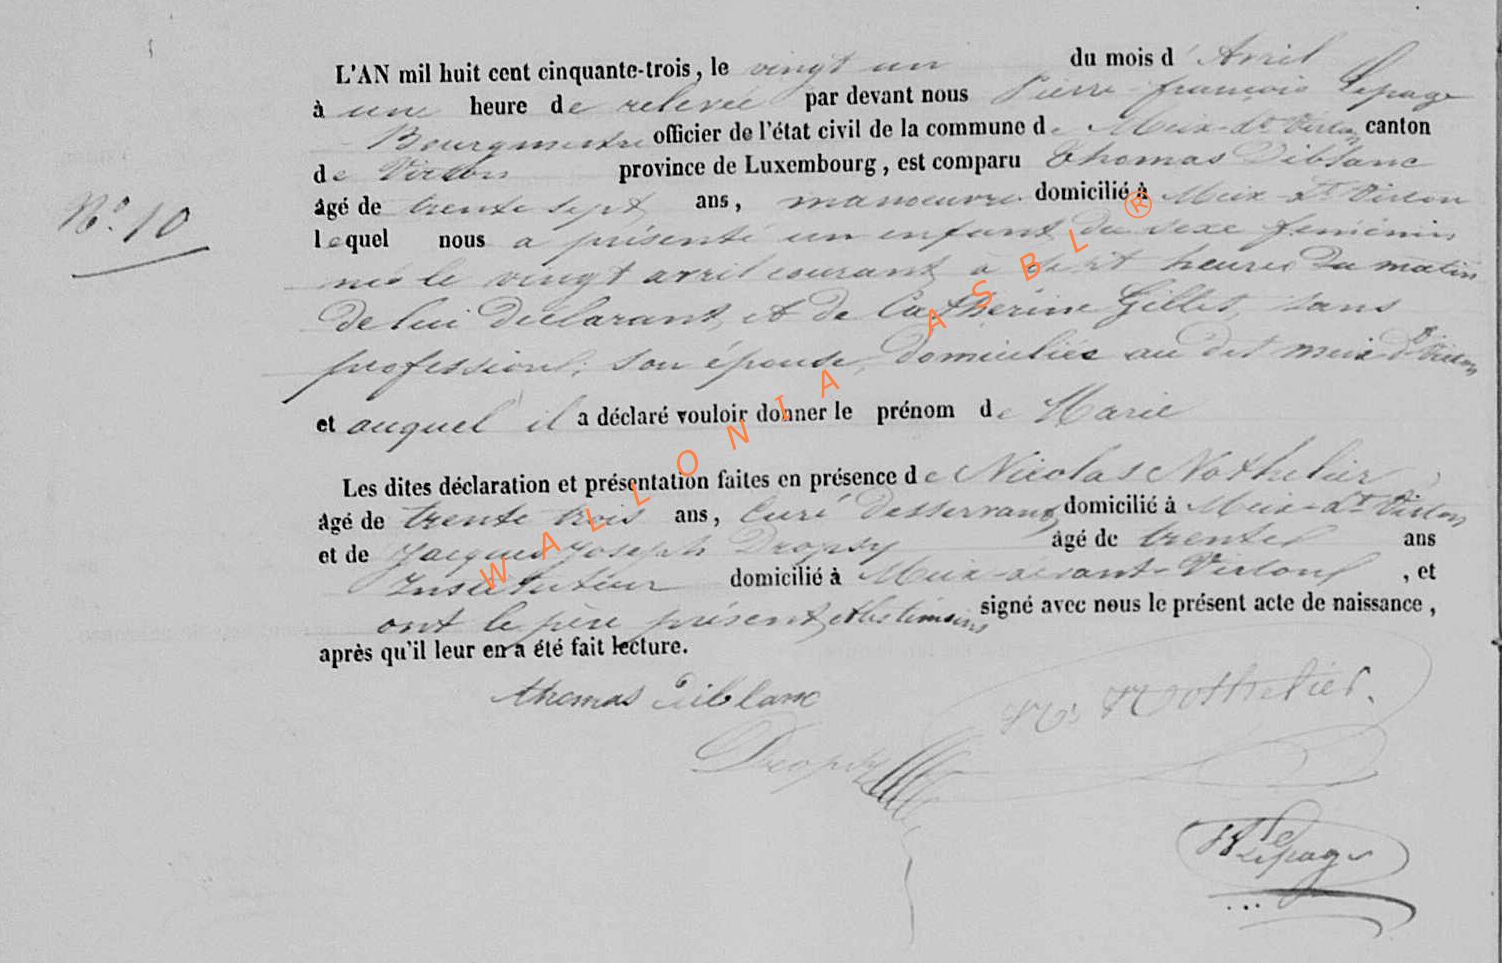 L'AN mil huit cent cinquante-trois, le vingt un du mois d' Avril
à une heure de relevée par devant nous Pierre françois Lepage
Bourgmestre officier de l'état civil de la commune de Meix-dt Virton canton
de Virton province de Luxembourg, est comparu Thomas Diblanc
âgé de trente sept ans, manoeuvre domicilié à Meix-dt Virton
N° 10
lequel nous a présenté un enfant du sexe féminin
née le vingt avril courant à heures du matin
de lui déclarant, et de Catherine Gillet, sans
profession, son epouse, domiciliée au dit meix dt Virton
et auquel il a déclaré vouloir donner le prénom de Marie
Les dites déclaration et présentation faites en présence de Nicolas Nothelier,
âgé de trente trois ans, Curé Desservant, domicilié à Meix-dt Virton
et de Jacques Joseph Dropsy âgé de trente ans
Instituteur domicilié à Meix-devant-Virton, et
ont le père présent et les témoins signé avec nous le présent acte de naissance,
après qu'il leur en a été fait lecture.
thomas diblanc
Ns Nothelier.
Dropsy
Lepage
WALLONIA ASBL ®